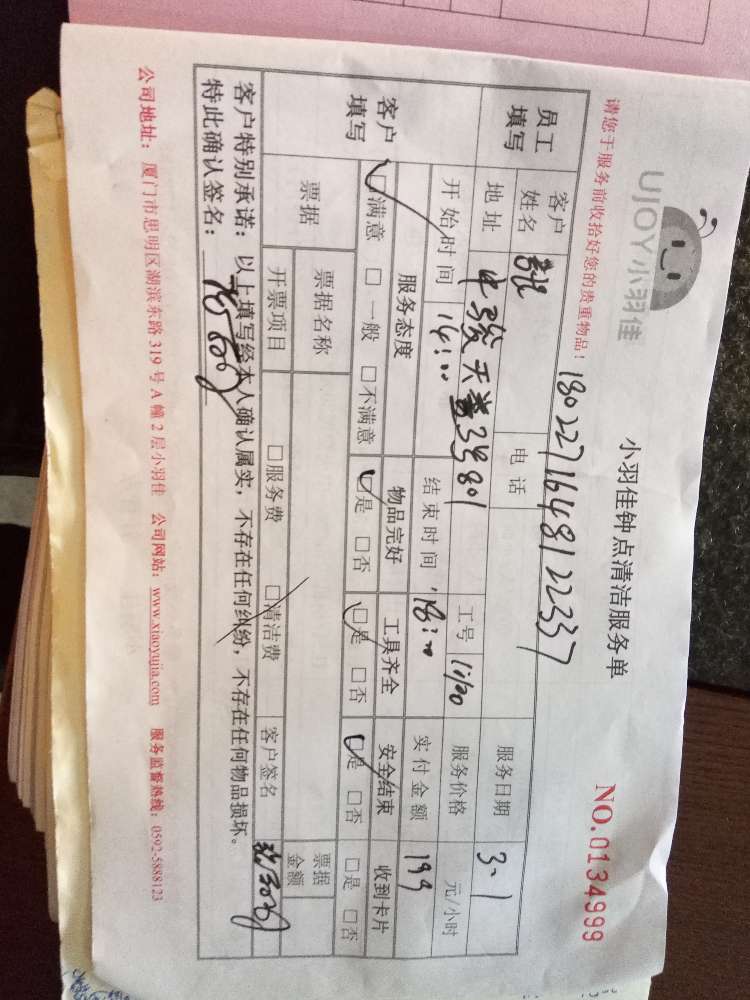 UJOY小羽佳
小羽佳钟点清洁服务单
NO.0134999
请您于服务前收拾好您的贵重物品！
180227164812 2337
员工填写
客户姓名
电话
服务日期 3.1
地址 中骏天誉3号801
工号 1120
服务价格 元/小时
开始时间 14:00
结束时间 18:00
实付金额 199
客户填写
服务态度 物品完好 工具齐全 安全结束 收到卡片
☑满意 □一般 □不满意 ☑是 □否 ☑是 □否 ☑是 □否 □是 □否
票据
票据名称
票据金额
开票项目 □服务费 □清洁费 客户签名
客户特别承诺：以上填写经本人确认属实，不存在任何纠纷，不存在任何物品损坏。
特此确认签名：
公司地址：厦门市思明区湖滨东路319号A幢2层小羽佳 公司网站：www.xiaoyujia.com 服务监督热线：0592-5888123